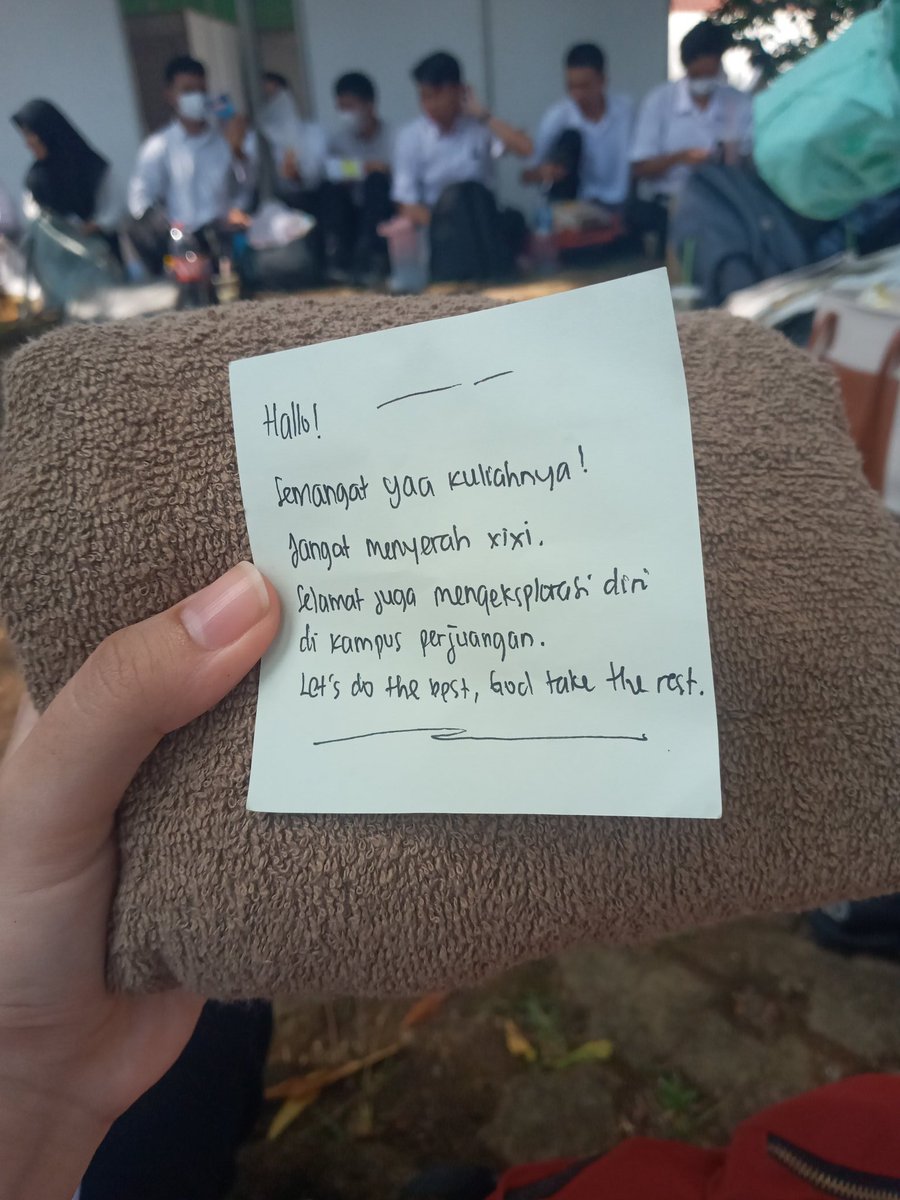 Hallo!
Semangat yaa kuliahnya!
Jangat menyerah xixi.
Selamat juga mengeksplorasi diri
di kampus perjuangan.
Let's do the best, God take the rest.